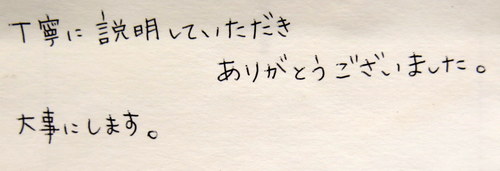 丁寧に説明していただき
ありがとうございました。
大事にします。